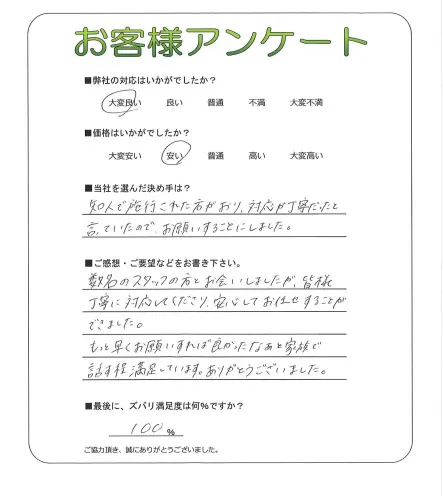 お客様アンケート
■弊社の対応はいかがでしたか？
大変良い 良い 普通 不満 大変不満
■価格はいかがでしたか？
大変安い 安い 普通 高い 大変高い
■当社を選んだ決め手は？
知人で施行された方がおり、対応が丁寧だったと
言っていたので、お願いすることにしました。
■ご感想・ご要望などをお書き下さい。
数名のスタッフの方とお会いしましたが、皆様
丁寧に対応してくださり、安心してお任せすることが
できました。
もっと早くお願いすれば良かったなぁと家族で
話す程満足しています。ありがとうございました。
■最後に、ズバリ満足度は何％ですか？
100％
ご協力頂き、誠にありがとうございました。